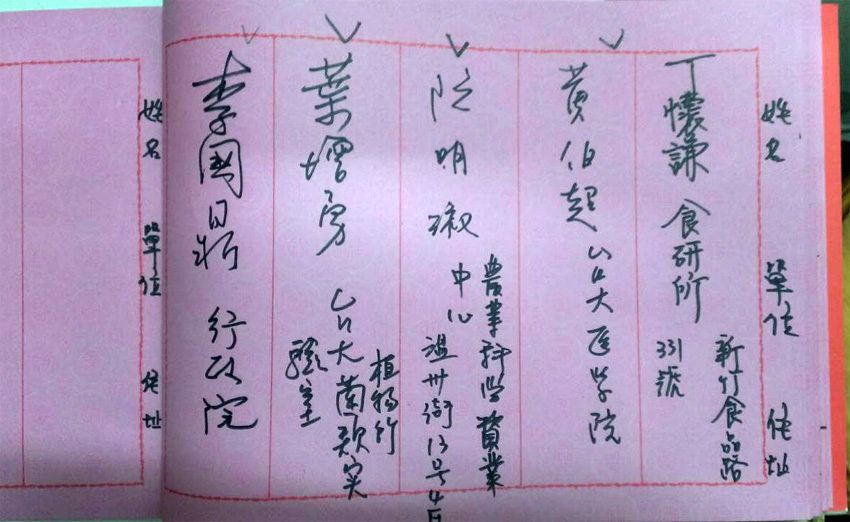 姓名 單位 住址
丁懷謙 食研所 新竹食品路
331號
黃伯超 台大医学院
阮明淑 農業科学資業
中心 溫州街13号4F
葉增勇 台大 植物所
菌類实
驗室
李國 行政院
姓名 單位 住址